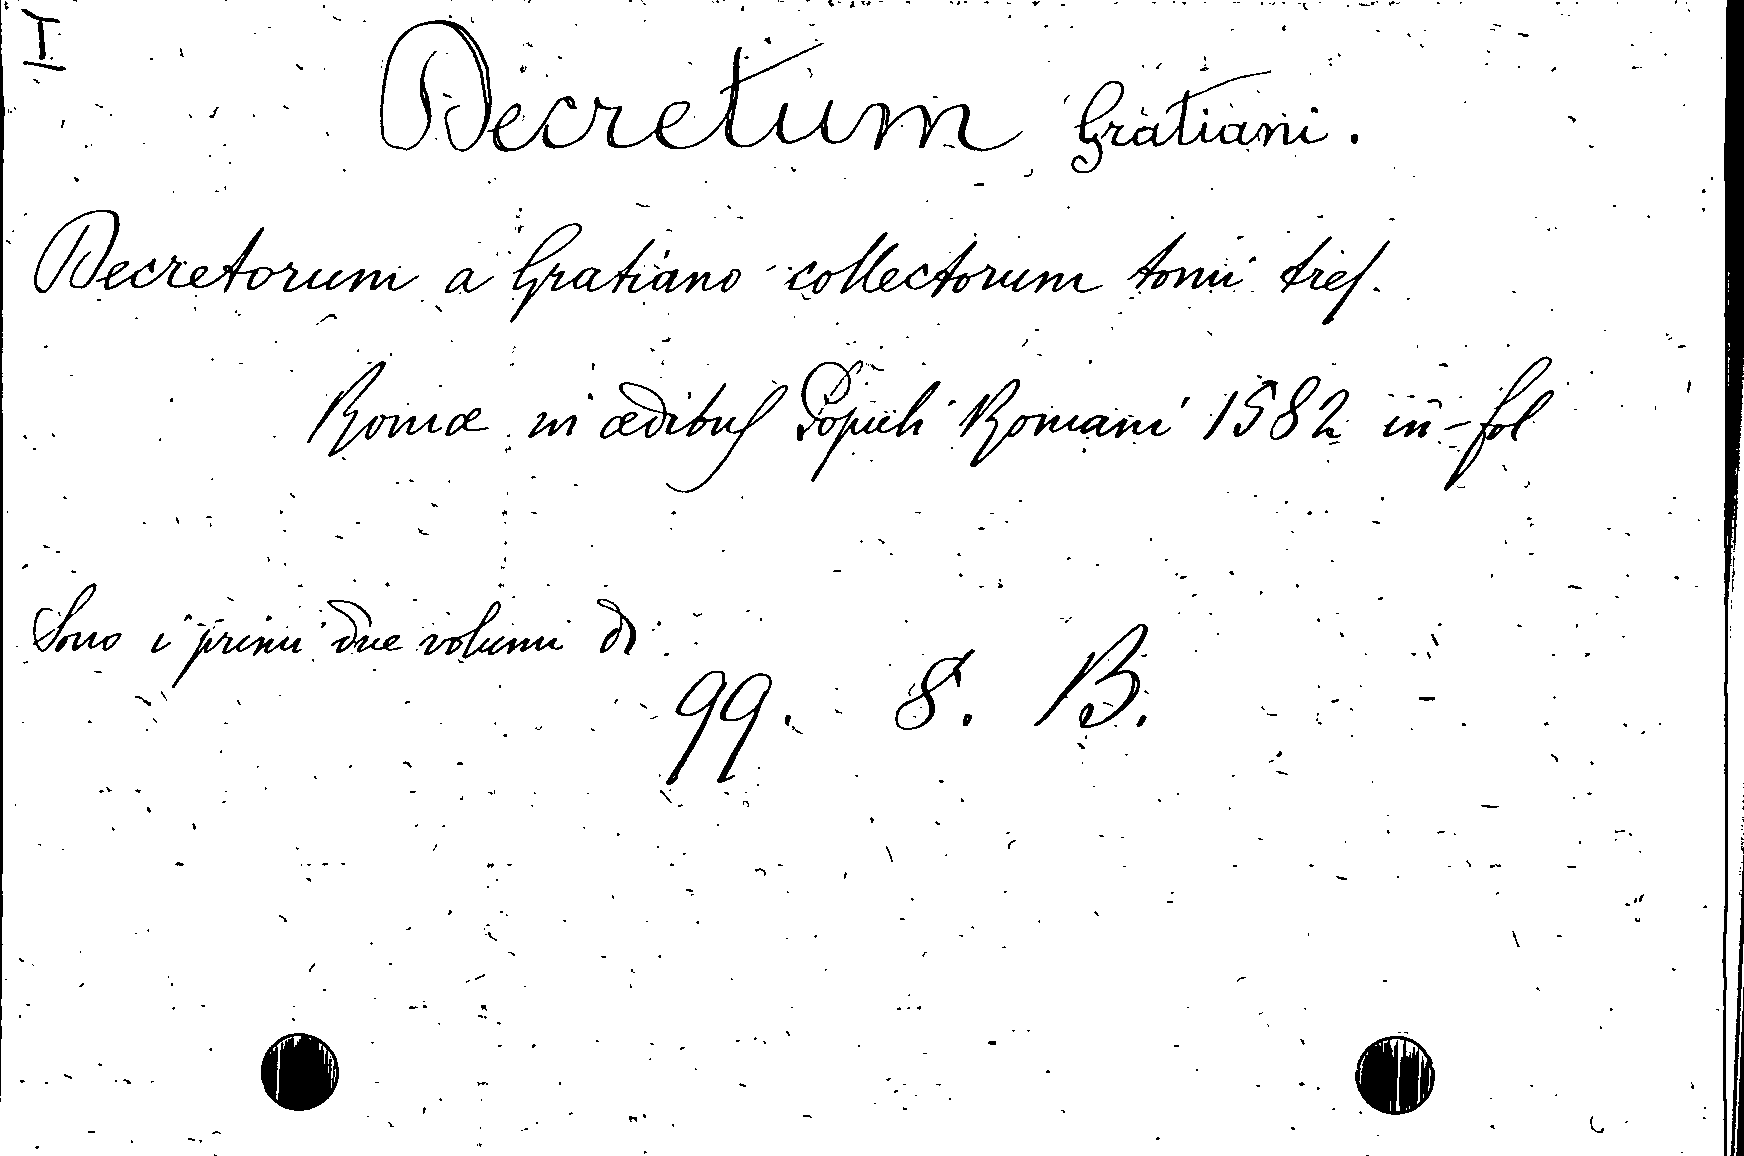 I
Decretum Gratiani.
Decretorum a Gratiano collectorum tomi tres.
Romæ in ædibus Populi Romani 1582 in-fol
Sono i primi due volumi di
99. 8. B.